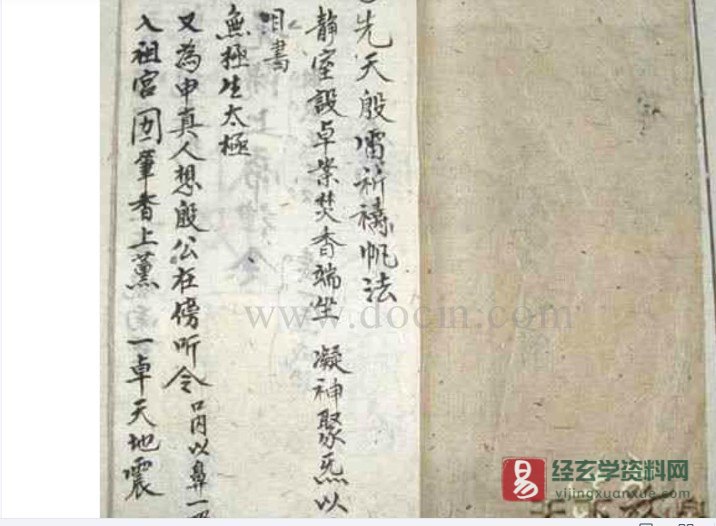 先天殷雷祈禱帆法
静室設卓案焚香端坐 凝神聚炁以
目書
無極生太極
又為申真人想殷公在傍听令 口内以鼻一
入祖宫 筆香上薰 一卓天地震
www.docin.com
易 经玄学资料网
vijingxuanxue.com